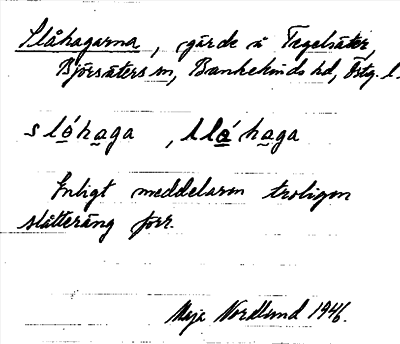 Slåhagarna, gärde i Tegelsäter,
Björsäters sn, Bankekinds hd, Östg. l.
slo̲´ha̲ga, lla̲´ha̲ga
Enligt meddelaren troligen
slåtteräng förr.
Maja Nordlund 1946.